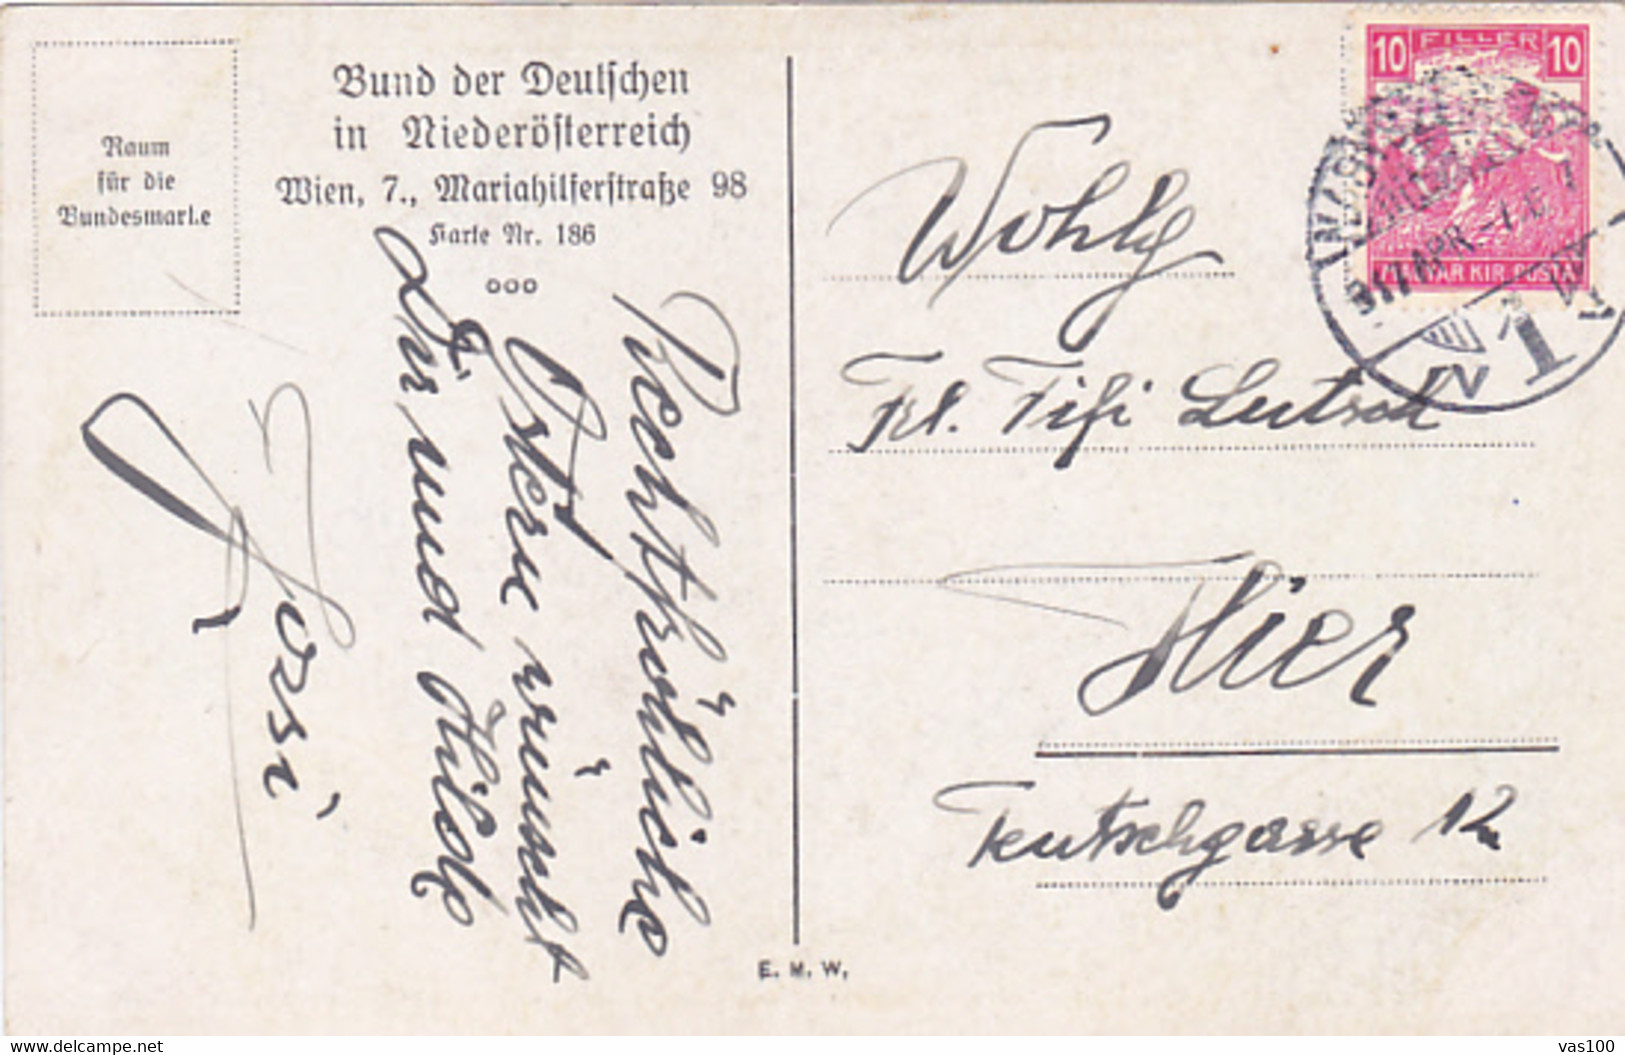 Raum
für die
Bundesmarke
Bund der Deutschen
in Niederösterreich
Wien, 7., Mariahilferstraße 98
Karte Nr. 186
Recht fröhliche
Ostern wünscht
Dir und Hilde
Josi
E. M. W.
10 FILLER 10
MAGYAR KIR. POSTA
917 APR.
Wohlg
Frl. Fifi Lutsch
Hier
Teutschgasse 12
www.delcampe.net
vas100